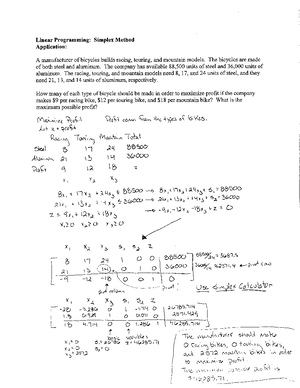 Linear Programming: Simplex Method
Application:
A manufacturer of bicycles builds racing, touring, and mountain models. The bicycles are made
of both steel and aluminum. The company has available 88,500 units of steel and 36,000 units of
aluminum. The racing, touring, and mountain models need 8, 17, and 24 units of steel, and they
need 21, 13, and 14 units of aluminum, respectively.
How many of each type of bicycle should be made in order to maximize profit if the company
makes $9 per racing bike, $12 per touring bike, and $18 per mountain bike? What is the
maximum possible profit?
Maximize Profit Profit comes from the types of bikes.
Let z = profit
Racing Touring Mountain Total
Steel 8 17 24 88500
Aluminum 21 13 14 36000
Profit 9 12 18 z
x₁ x₂ x₃
8x₁ + 17x₂ + 24x₃ ≤ 88500 → 8x₁ + 17x₂ + 24x₃ + s₁ = 88500
21x₁ + 13x₂ + 14x₃ ≤ 36000 → 21x₁ + 13x₂ + 14x₃ + s₂ = 36000
z = 9x₁ + 12x₂ + 18x₃ → -9x₁ - 12x₂ - 18x₃ + z = 0
x₁ ≥ 0 x₂ ≥ 0 x₃ ≥ 0
x₁ x₂ x₃ s₁ s₂ z
8 17 24 1 0 0 88500
21 13 14 0 1 0 36000
-9 -12 -18 0 0 1 0
Use Simplex Calculator
x₁ x₂ x₃ s₁ s₂ z
The manufacturer should make
0 racing bikes, 0 touring bikes,
and 2572 mountain bikes in order
to maximize profit.
The maximum possible profit is